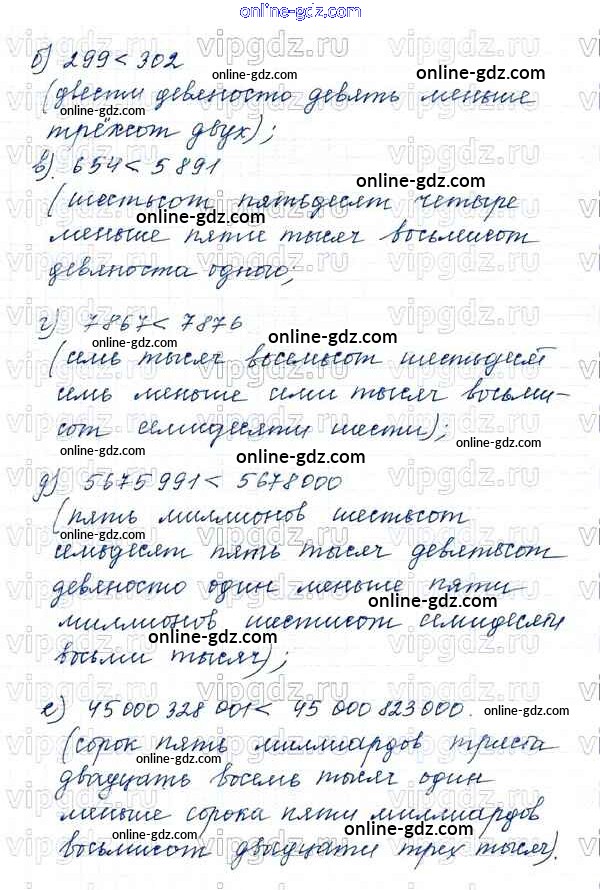 online-gdz.com
б) 299 < 302
(двести девяносто девять меньше
трёхсот двух);
в). 654 < 5 891
(шестьсот пятьдесят четыре
меньше пяти тысяч восьмисот
девяноста одного;
г) 7867 < 7876
(семь тысяч восемьсот шестьдесят
семь меньше семи тысяч восьми-
сот семидесяти шести);
д) 5675 991 < 5678000
(пять миллионов шестьсот
семьдесят пять тысяч девятьсот
девяносто один меньше пяти
миллионов шестисот семидесяти
восьми тысяч);
е) 45 000 328 001 < 45 000 823 000.
(сорок пять миллиардов триста
двадцать восемь тысяч один
меньше сорока пяти миллиардов
восьмисот двадцати трех тысяч).